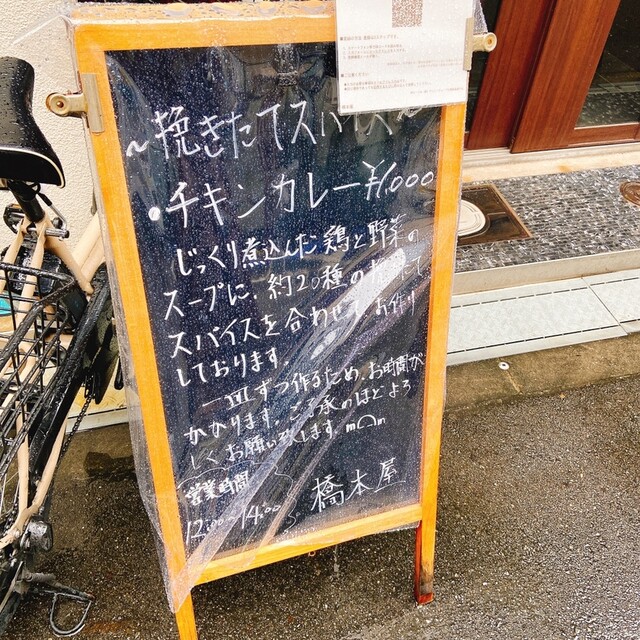 ~挽きたてスパイス~
・チキンカレー ¥1,000
じっくり煮込んだ鶏と野菜の
スープに、約20種の挽きたて
スパイスを合わせて、お作り
しております。
一皿ずつ作るため、お時間が
かかります。ご了承のほどよろ
しくお願い致します。m⌒m
営業時間
12:00~14:00
橋本屋